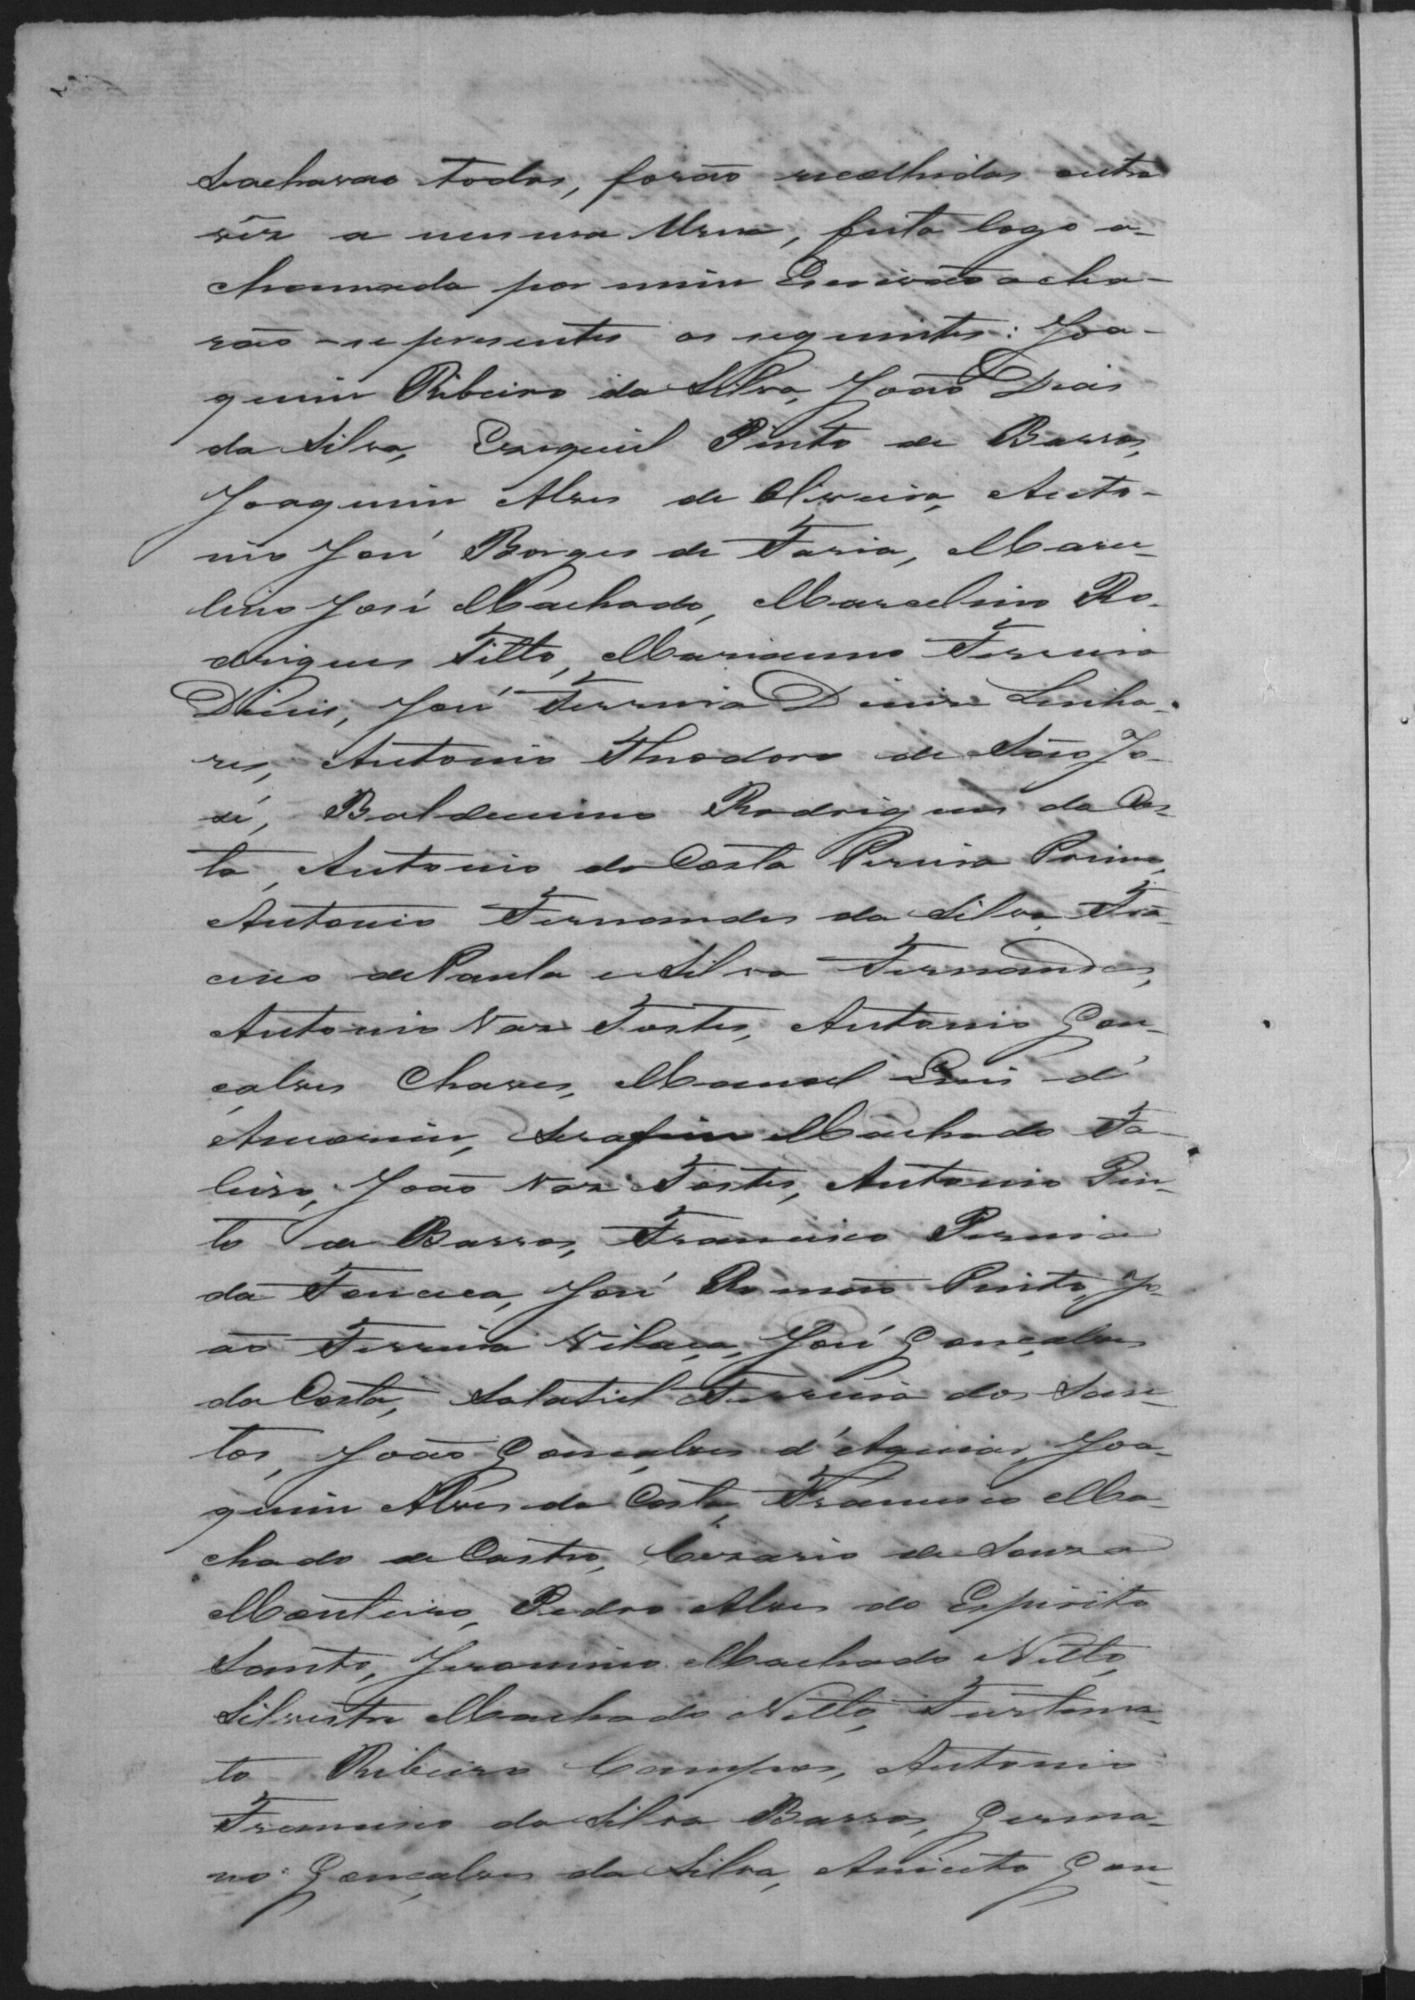 s'acharao todos, forão recolhidas outra
vêz a mesma Urna, feita logo a
chamada por mim Escrivão acha-
rão-se presentes os seguintes: Joa-
quim Ribeiro da Silva, João Dias
da Silva, Ezequiel Pinto de Barros,
Joaquim Alves de Oliveira, Anto-
nio José Borges de Faria, Marce-
lino José Machado, Marcelino Ro-
drigues Titto, Marianno Ferreira
Diniz, José Ferreira Diniz Linha-
res, Antonio Theodoro de São Jo-
sé, Balduino Rodrigues da Cos-
ta, Antonio da Costa Pereira Primo,
Antonio Fernandes da Silva,
de Paula e Silva Fernandes,
Antonio Vaz Tostes, Antonio Gon-
çalves Chaves, Manoel Luis d'
Amorim, Serafim Machado Fa-
leiro, João Vaz Tostes, Antonio Pin-
to de Barros, Francisco Pereira
da Fonceca, José Romão Pinto, Jo-
ão Ferreira Vilaça, José Gonçalves
da Costa, Salatiel Ferreira dos San-
tos, João Gonçalves d'Aguiar, Joa-
quim Alves da Costa, Francisco Ma-
chado de Castro, Cezario de Souza
Monteiro, Pedro Alves do Espirito
Santo, Jeronimo Machado Netto,
Silvestre Machado Netto, Fortuna-
to Ribeiro Campos, Antonio
Francisco da Silva Barros, Germa-
no Gonçalves da Silva, Aniceto Gon-